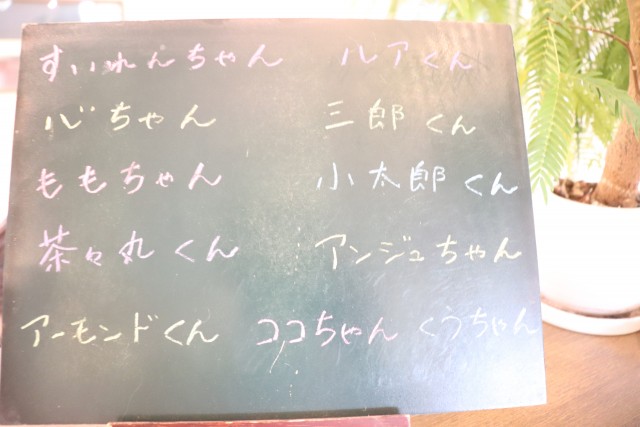 すいれんちゃん ルアくん
心ちゃん 三郎くん
ももちゃん 小太郎くん
茶々丸くん アンジュちゃん
アーモンドくん ココちゃん くうちゃん